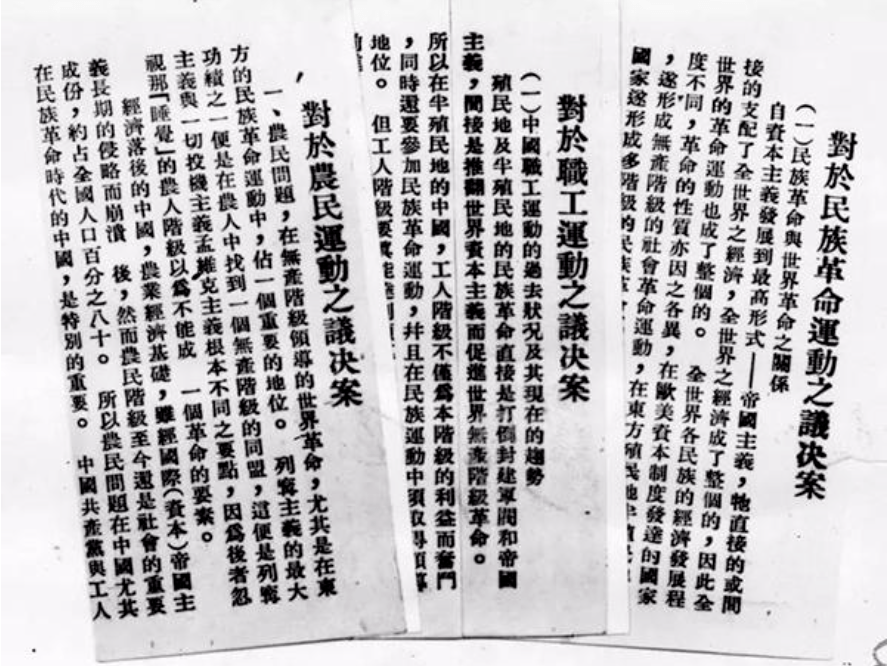 對於民族革命運動之議決案
(一)民族革命與世界革命之關係
自資本主義發展到最高形式——帝國主義,牠直接的或間
接的支配了全世界之經濟,全世界之經濟成了整個的,因此全
世界的革命運動也成了整個的。 全世界各民族的經濟發展程
度不同,革命的性質亦因之各異,在歐美資本制度發達的國家
,遂形成無產階級的社會革命運動,在東方殖民地半殖民地
國家遂形成多階級的民族革
對於職工運動之議決案
(一)中國職工運動的過去狀况及其現在的趨勢
殖民地及半殖民地的民族革命直接是打倒封建軍閥和帝國
主義,間接是推翻世界資本主義而促進世界無產階級革命。
所以在半殖民地的中國,工人階級不僅爲本階級的利益而奮鬥
,同時還要參加民族革命運動,幷且在民族運動中須取得領導
地位。 但工人階級要眞能達到
對於農民運動之議決案
一、農民問題,在無產階級領導的世界革命,尤其是在東
方的民族革命運動中,佔一個重要的地位。 列寗主義的最大
功績之一便是在農人中找到一個無產階級的同盟,這便是列寗
主義與一切投機主義孟維克主義根本不同之要點,因爲後者忽
視那「睡覺」的農人階級以爲不能成 一個革命的要素。
經濟落後的中國,農業經濟基礎,雖經國際(資本)帝國主
義長期的侵略而崩潰 後,然而農民階級至今還是社會的重要
成份,約占全國人口百分之八十。 所以農民問題在中國尤其
在民族革命時代的中國,是特別的重要。 中國共產黨與工人